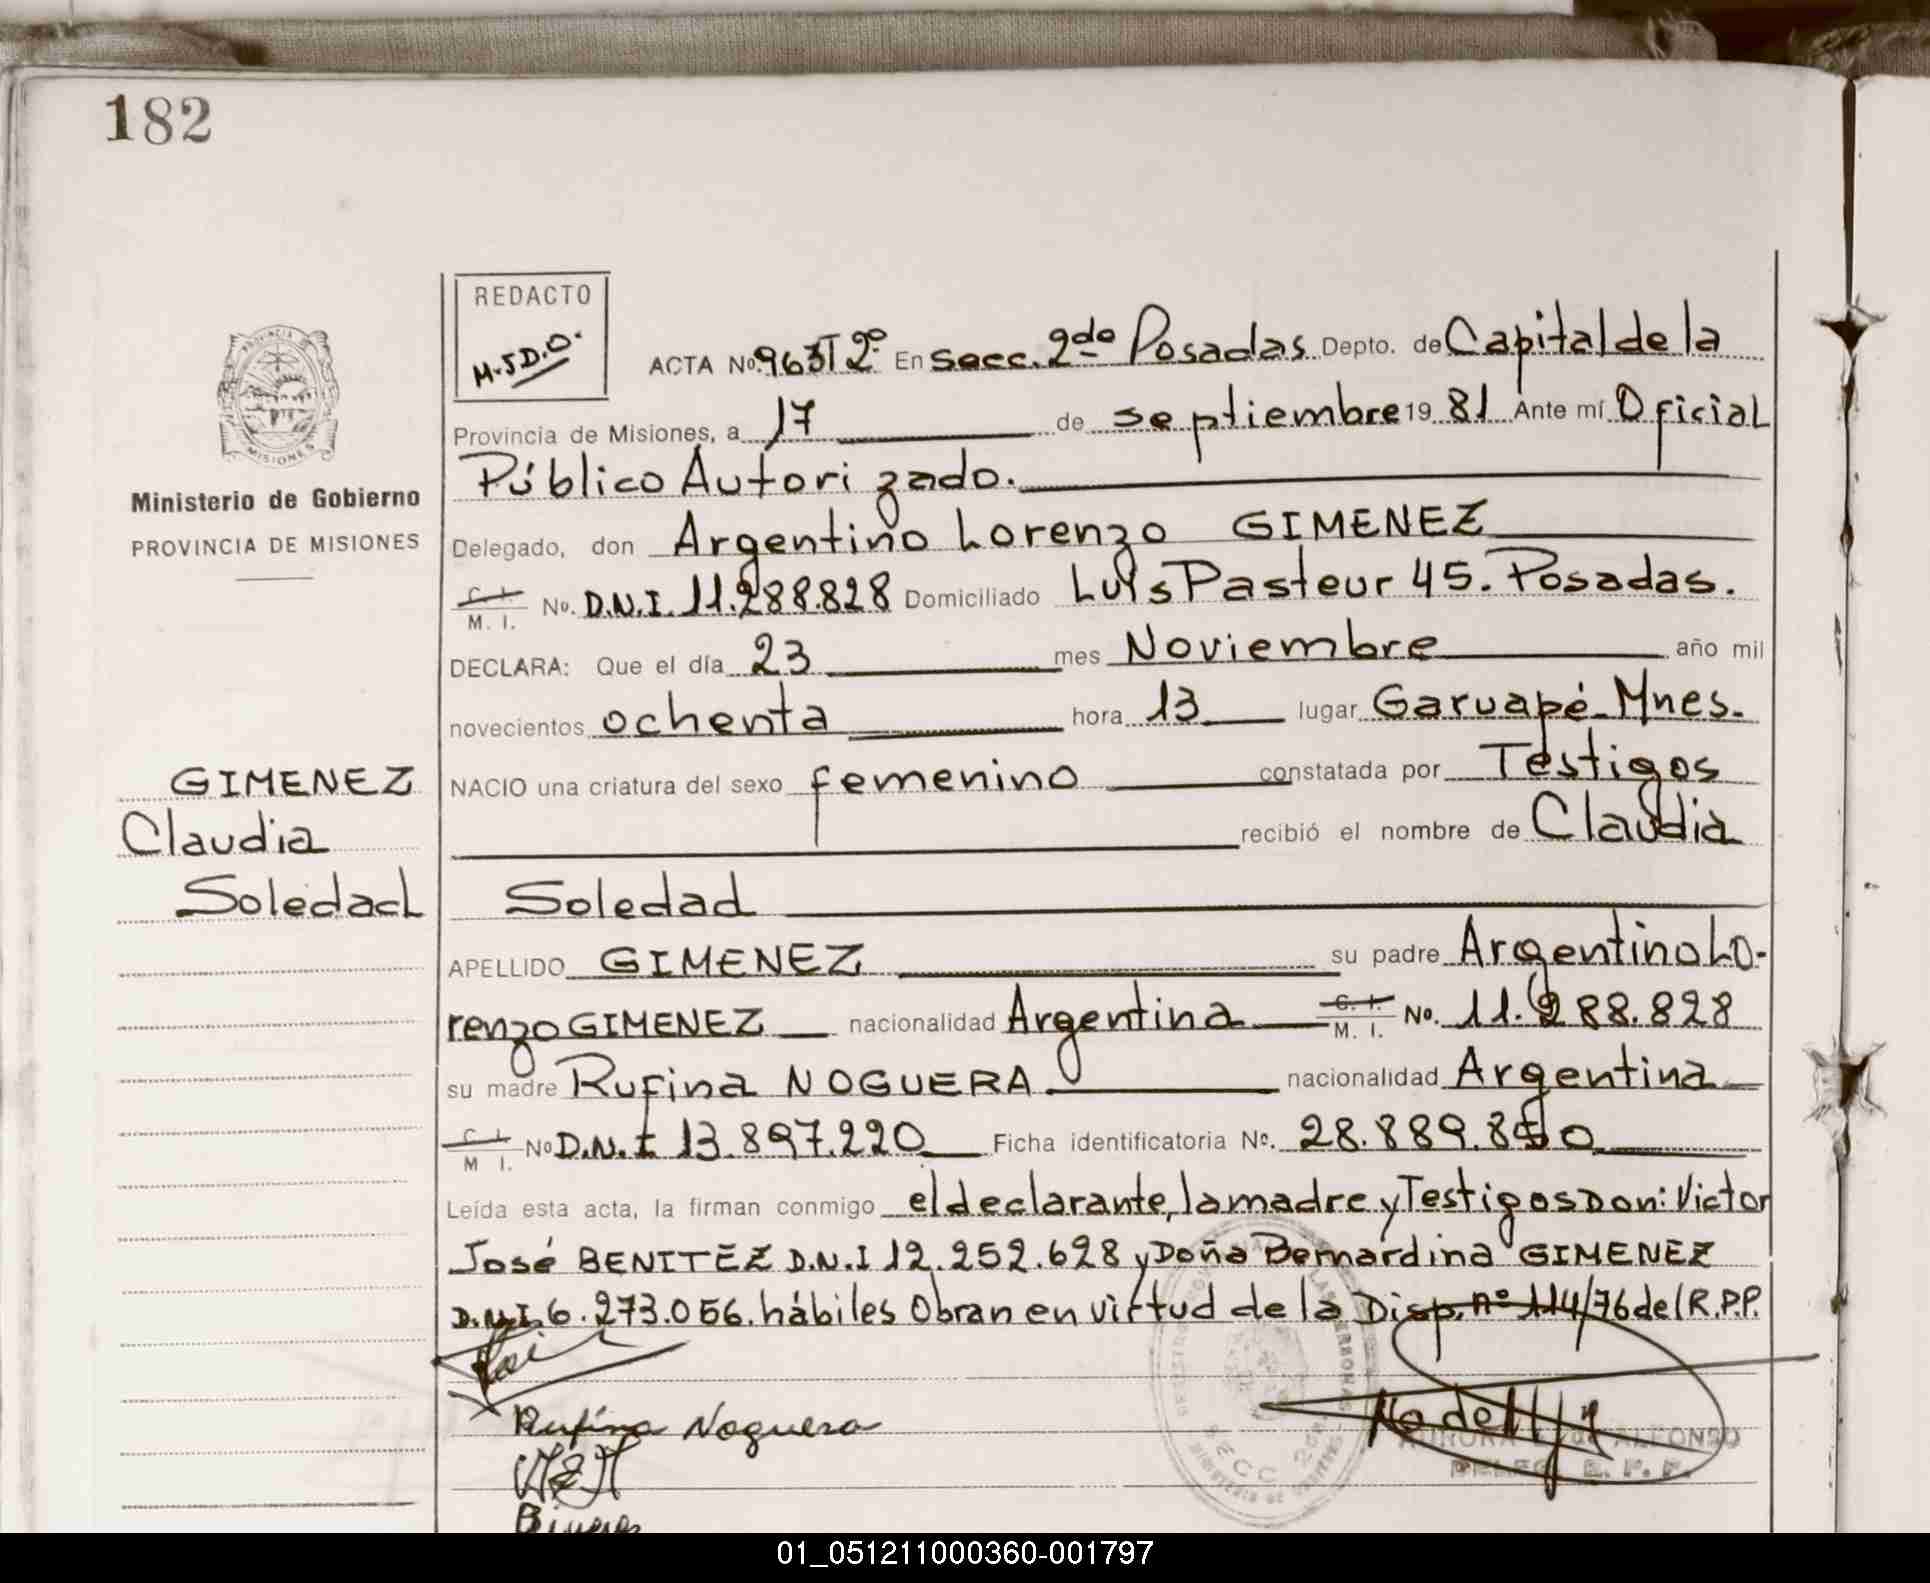 182
REDACTO
M.J.D.O.
ACTA No. 963 T 2º En Secc. 2da Posadas Depto. de Capital de la
Provincia de Misiones, a 17 de septiembre 19 81 Ante mí Oficial
Público Autorizado.
Delegado, don Argentino Lorenzo GIMENEZ
C. I.
M. I. No. D.N.I. 11.288.828 Domiciliado Luis Pasteur 45. Posadas.
DECLARA: Que el día 23 mes Noviembre año mil
novecientos ochenta hora 13 lugar Garuapé-Mnes.
NACIO una criatura del sexo femenino constatada por Testigos
recibió el nombre de Claudia
Soledad
APELLIDO GIMENEZ su padre Argentino Lo-
renzo GIMENEZ nacionalidad Argentina C. I. M. I. No. 11.288.828
su madre Rufina NOGUERA nacionalidad Argentina
C. I.
M I. No D.N.I 13.897.220 Ficha identificatoria No. 28.889.850
Leída esta acta, la firman conmigo el declarante, la madre y Testigos Don: Victor
José BENITEZ D.N.I 12.252.628 y Doña Bernardina GIMENEZ
D.N.I. 6.273.056. hábiles Obran en virtud de la Disp. nº 114/76 del R.P.P.
Rufina Noguera
PROVINCIA
MISIONES
Ministerio de Gobierno
PROVINCIA DE MISIONES
GIMENEZ
Claudia
Soledad
SECC 2da
AURORA ALFONZO
DELEG. R. P. P.
01_051211000360-001797